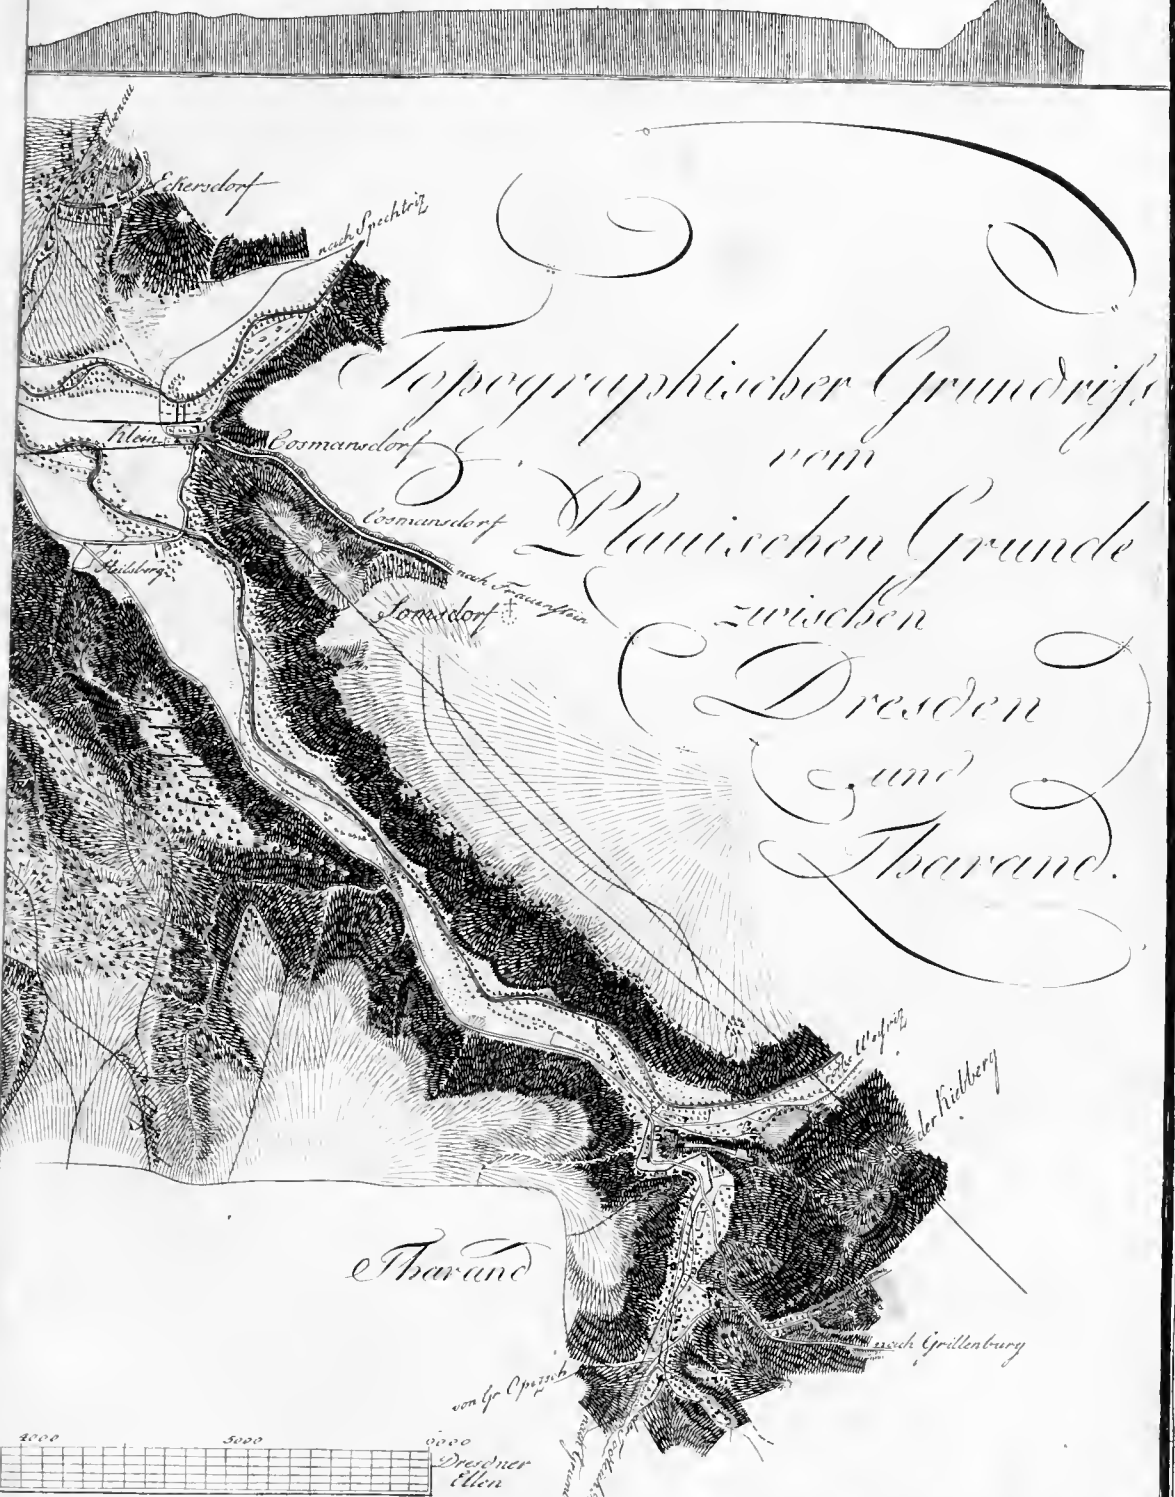 Eckersdorf
nach Spechtriz
Topographischer Grundriß
vom
Plauischen Grunde
zwischen
Dresden
und
Tharand.
Klein
Cosmansdorf
Cosmansdorf
nach Frauenstein
Heilsberg
Somsdorf
der Kiehberg
Tharand
nach Grillenburg
von Gr. Opitsch
4000 5000 6000
Dresdner
Ellen